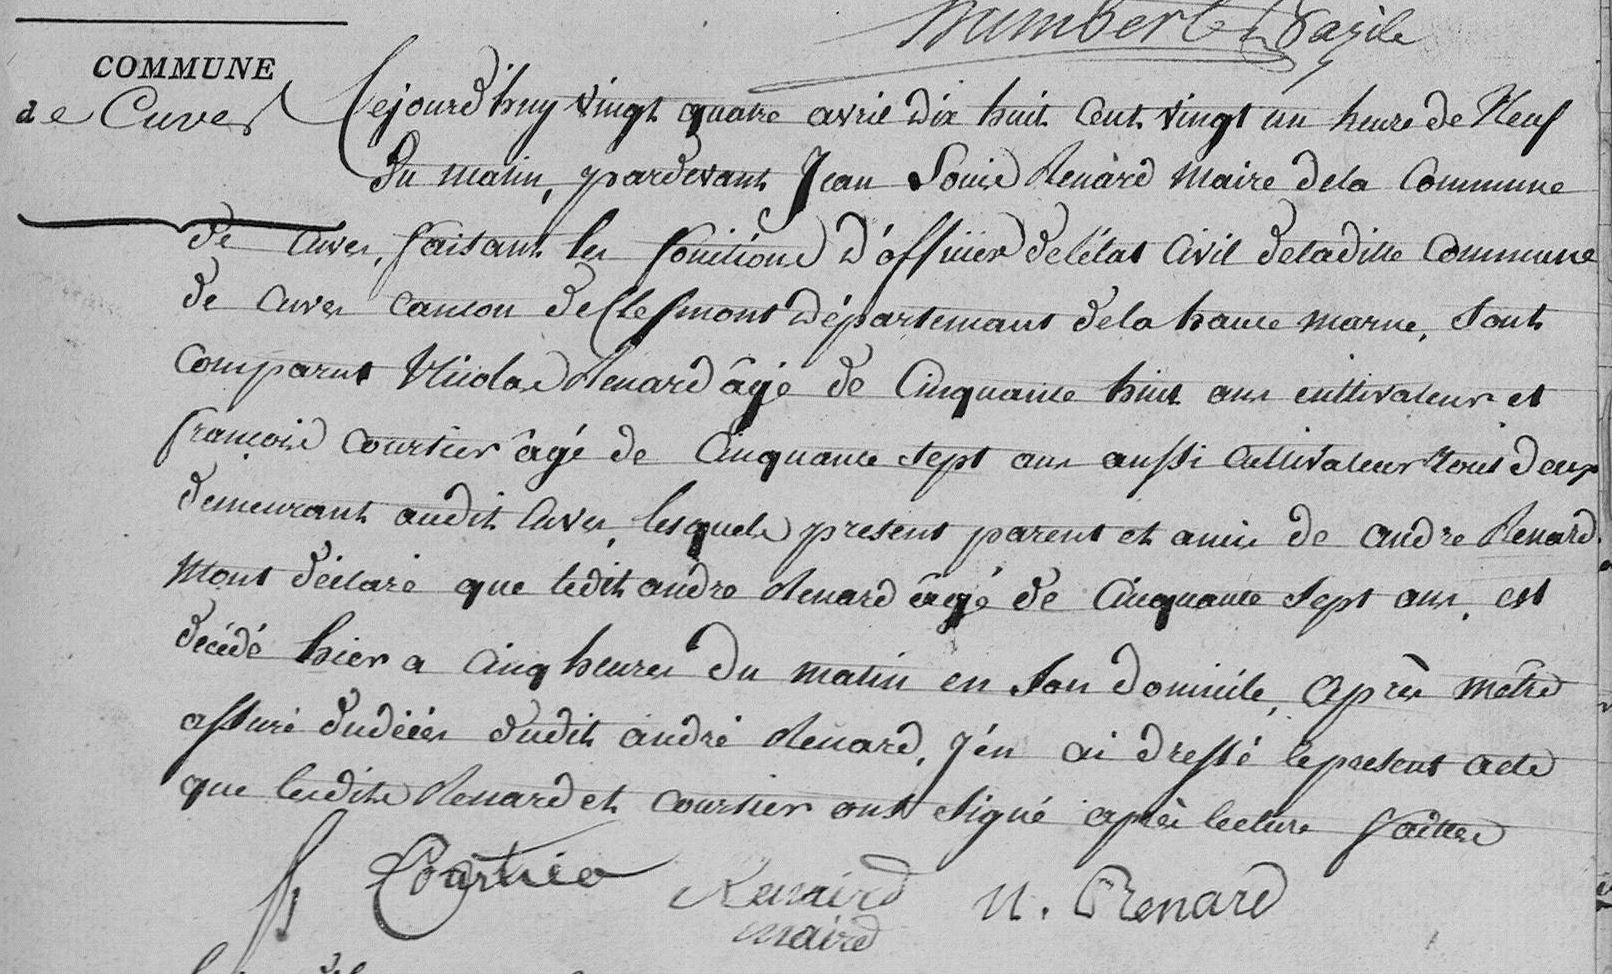 humbert Bazile
COMMUNE
de Cuves
Cejourd'huy vingt quatre avril dix huit cent vingt un heure de Neuf
du matin, pardevant Jean Louis Renard Maire dela Commune
de Cuves, faisant les fonctions d'officier del'état Civil deladitte Commune
de Cuves canton de Clefmont département dela haute marne, sont
comparut Nicolas Renard âgé de Cinquante huit ans cultivateur et
françois courtier âgé de Cinquante sept ans aussi Cultivateur tous deux
demeurant audit Cuves, lesquels présent parent et amis de andre Renard
Mont déclaré que ledit andre Renard âgé de Cinquante sept ans, est
décédé hier a cinq heures du matin en son domicile, après m'être
assuré dudécès dudit andré Renard, j'en ai dressé leprésent acte
que lesdits Renard et courtier ont signé après lecture faitte
f Courtier
Renard
maire
N. Renard